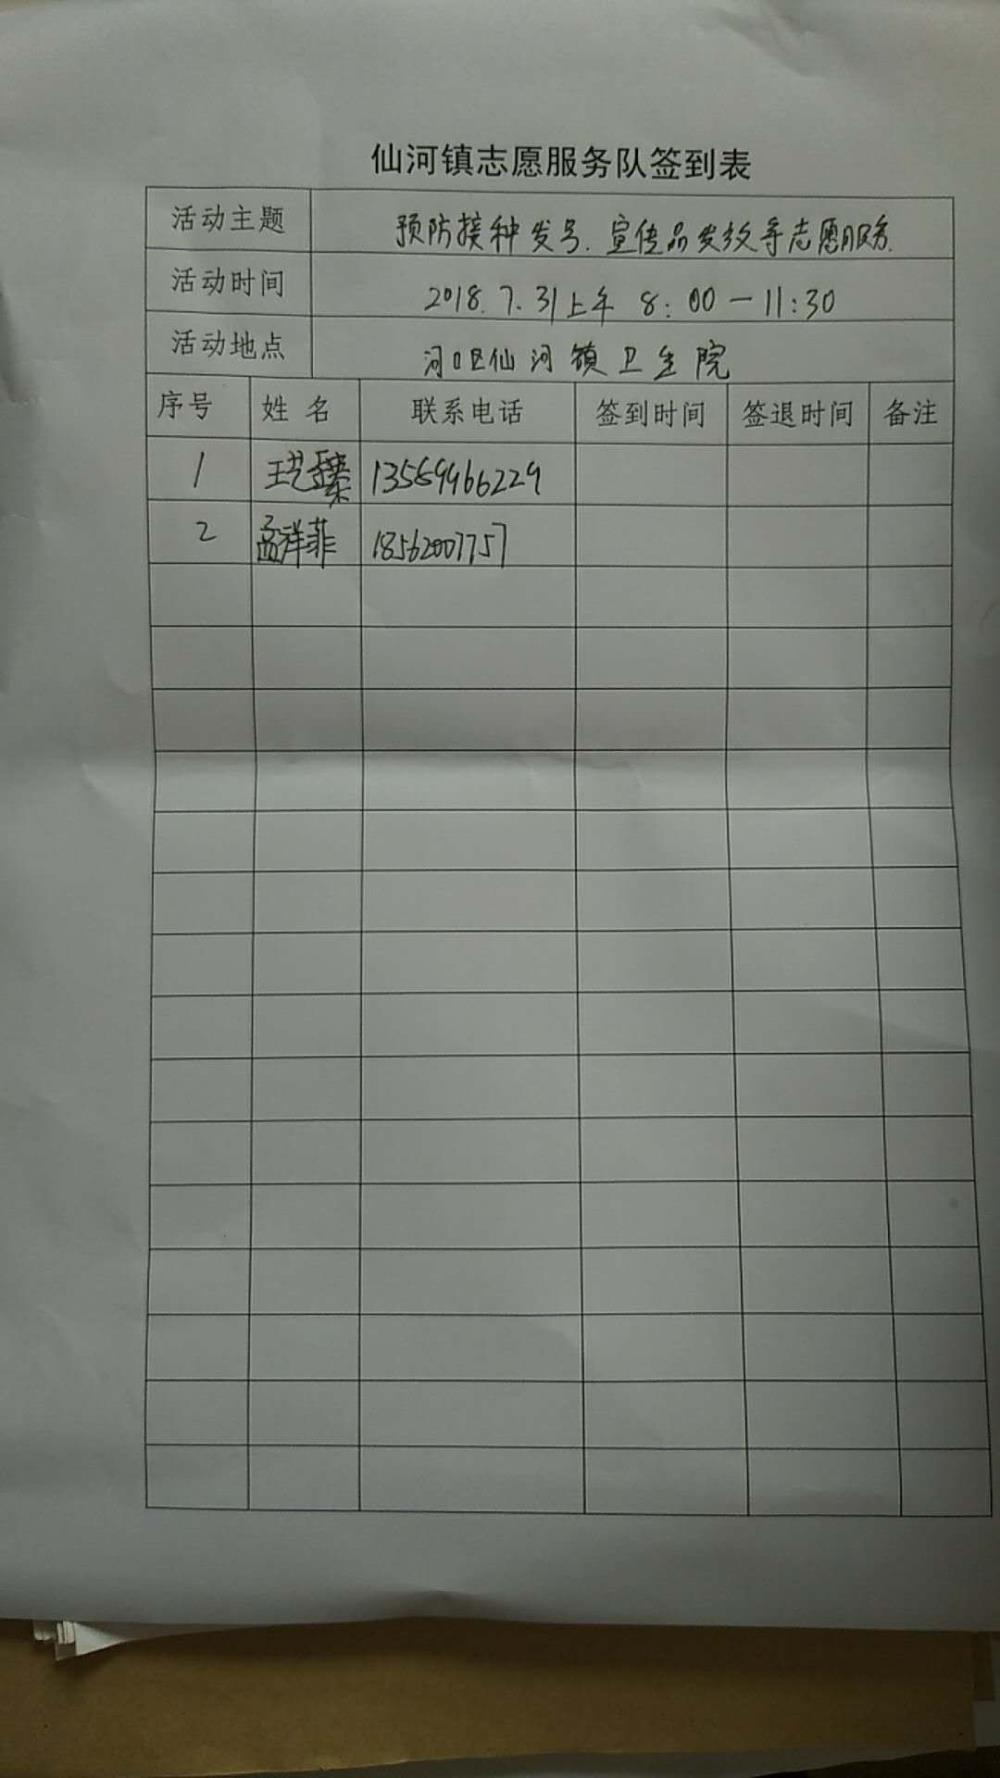 仙河镇志愿服务队签到表
活动主题 预防接种发号、宣传品发放等志愿服务.
活动时间 2018.7.31上午 8:00一11:30
活动地点 河口区仙河镇卫生院
序号 姓名 联系电话 签到时间 签退时间 备注
1 王艺臻 13589966229
2 孟洋菲 18562007757